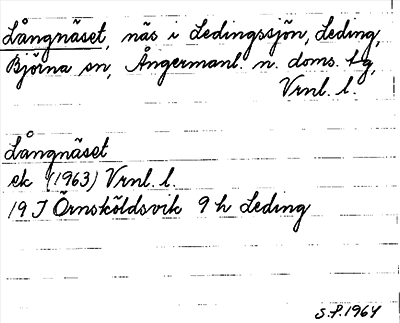 Långnäset, näs i Ledingssjön, Leding,
Björna sn, Ångermanl. n. doms. tg,
Vrnl. l.
Långnäset
ek (1963) Vrnl. l.
19 J Örnsköldsvik 9 h Leding
S.P. 1964